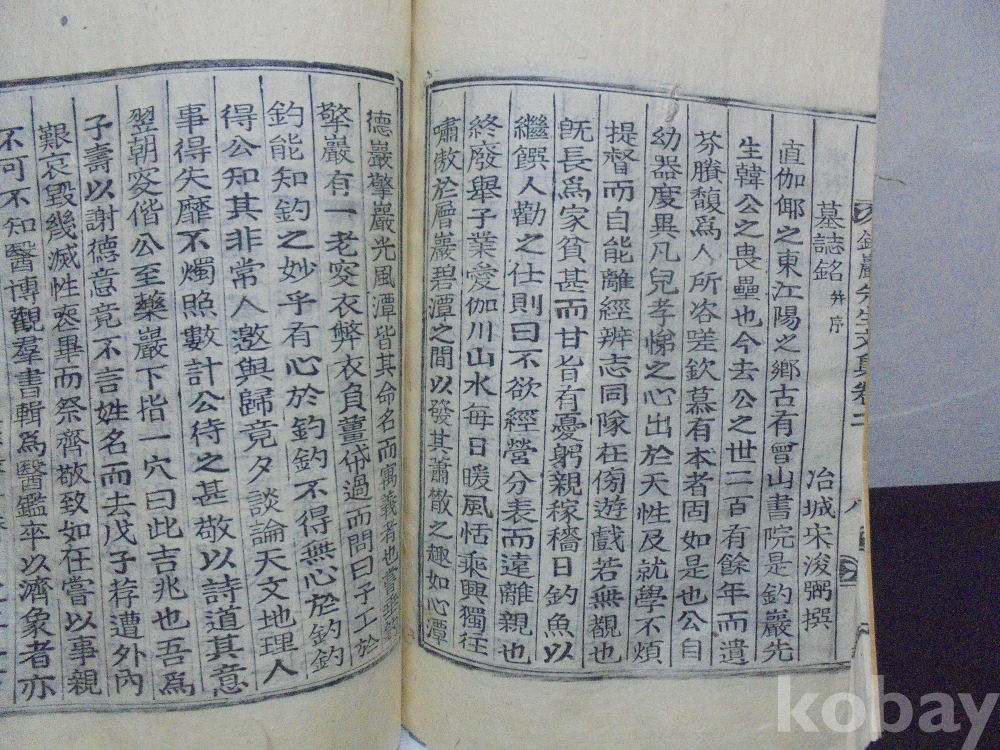 釣巖先生文集卷二 八
墓誌銘 幷序
冶城宋浚弼撰
直伽倻之東江陽之鄉古有曾山書院是釣巖先
生韓公之畏壘也今去公之世二百有餘年而遺
芬賸馥爲人所咨嗟欽慕有本者固如是也公自
幼器度異凡兒孝悌之心出於天性及就學不煩
提督而自能離經辨志同隊在傍遊戲若無覩也
旣長爲家貧甚而甘旨有憂躬親稼穡日釣魚以
繼饌人勸之仕則曰不欲經營分表而遠離親也
終廢舉子業愛伽川山水每日暖風恬乘興獨往
嘯傲於層巖碧潭之間以發其蕭散之趣如心潭
德巖擎巖光風潭皆其命名而寓義者也嘗垂
擎巖有一老叜衣弊衣負薑帒過而問曰子工於
釣能知釣之妙乎有心於釣釣不得無心於釣釣
得公知其非常人邀與歸竟夕談論天文地理人
事得失靡不燭照數計公待之甚敬以詩道其意
翌朝叜偕公至藥巖下指一穴曰此吉兆也吾爲
子壽以謝德意竟不言姓名而去戊子荐遭外內
艱哀毀幾滅性喪畢而祭齊敬致如在嘗以事親
不可不知醫博觀羣書輯爲醫鑑卒以濟象者亦
kobay